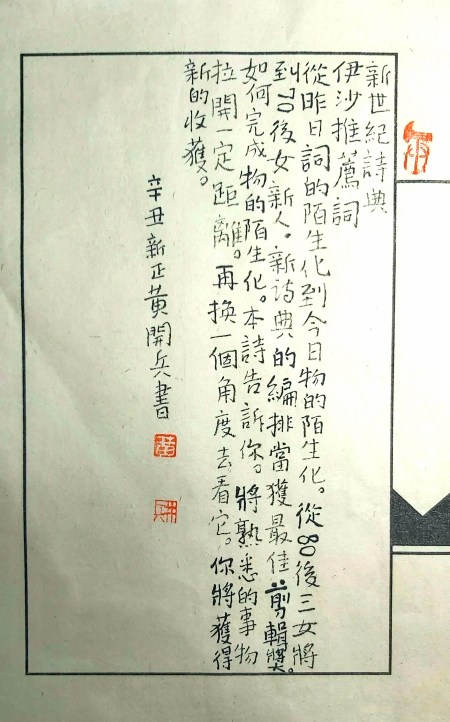 新世紀詩典
伊沙推薦詞
從昨日詞的陌生化到今日物的陌生化。從80後三女將
到70後女新人。新詩典的編排當獲最佳剪輯獎。
如何完成物的陌生化。本詩告訴你。將熟悉的事物
拉開一定距離。再換一個角度去看它。你將獲得
新的收獲。
辛丑新正黃開兵書